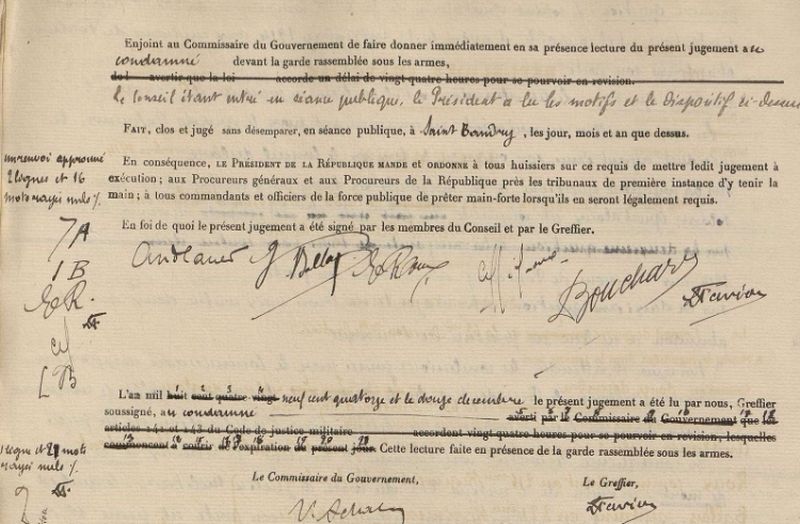 Enjoint au Commissaire du Gouvernement de faire donner immédiatement en sa présence lecture du présent jugement au
condamné devant la garde rassemblée sous les armes,
avertir que la loi accorde un délai de vingt-quatre heures pour se pourvoir en revision.
Le Conseil étant entré en séance publique, le Président a lu les motifs et le dispositif ci-dessus
FAIT, clos et jugé sans désemparer, en séance publique, à Saint Bandry, les jour, mois et an que dessus.
un renvoi approuvé
2 lignes et 16
mots rayés nuls /.
En conséquence, LE PRÉSIDENT DE LA RÉPUBLIQUE MANDE et ORDONNE à tous huissiers sur ce requis de mettre ledit jugement à
exécution ; aux Procureurs généraux et aux Procureurs de la République près les tribunaux de première instance d'y tenir la
main ; à tous commandants et officiers de la force publique de prêter main-forte lorsqu'ils en seront légalement requis.
En foi de quoi le présent jugement a été signé par les membres du Conseil et par le Greffier.
A
1 B
ER.
LB
Andlauer
Bouchard
L'an mil huit cent quatre-vingt neuf cent quatorze et le douze decembre le présent jugement a été lu par nous, Greffier
soussigné, au condamné averti par le Commissaire du Gouvernement que les
articles 141 et 143 du Code de justice militaire accordent vingt-quatre heures pour se pourvoir en revision, lesquelles
commencent à courir de l'expiration du présent jour. Cette lecture faite en présence de la garde rassemblée sous les armes.
1 ligne et 21 mots
rayés nuls /.
Le Commissaire du Gouvernement,
Le Greffier,